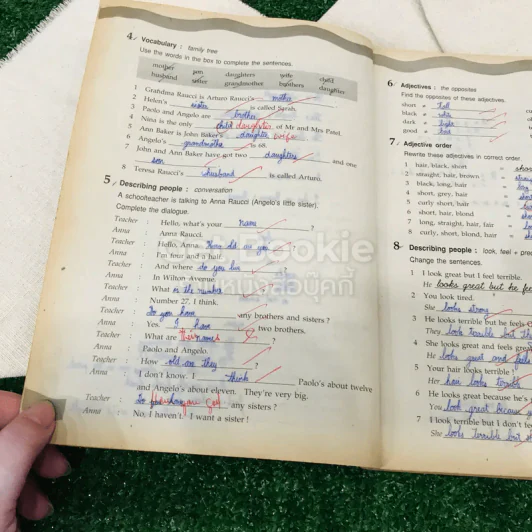 4 Vocabulary : family tree
Use the words in the box to complete the sentences.
mother son daughters wife child
husband sister grandmother brothers daughter
1 Grandma Raucci is Arturo Raucci's mother
2 Helen's sister is called Sarah.
3 Paolo and Angelo are brother
4 Nina is the only child daughter of Mr and Mrs Patel.
5 Ann Baker is John Baker's daughter wife
6 Angelo's grandmother is 68.
7 John and Ann Baker have got two daughters and one
son
8 Teresa Raucci's husband is called Arturo.
5 Describing people : conversation
A schoolteacher is talking to Anna Raucci (Angelo's little sister).
Complete the dialogue.
Teacher : Hello, what's your name ?
Anna : Anna Raucci.
Teacher : Hello, Anna. How old are you
Anna : I'm four and a half.
Teacher : And where do you live
Anna : In Wilton Avenue.
Teacher : What is the number
Anna : Number 27, I think.
Teacher : Do you have any brothers and sisters ?
Anna : Yes. I have two brothers.
Teacher : What are their names ?
Anna : Paolo and Angelo.
Teacher : How old are they ?
Anna : I don't know. I think Paolo's about twelve
and Angelo's about eleven. They're very big.
Teacher : you got any sisters ?
Anna : No, I haven't. I want a sister !
6 Adjectives : the opposites
Find the opposites of these adjectives.
short = tall
black =
dark = light
good = bad
7 Adjective order
Rewrite these adjectives in correct order.
1 hair, black, short =
2 straight, hair, brown =
3 black, long, hair =
4 short, grey, hair =
5 curly, short, hair =
6 short, hair, blond =
7 long, straight, hair, fair
8 curly, short, blond, hair =
8 Describing people : look, feel +
Change the sentences.
1 I look great but I feel terrible.
He looks great but he
2 You look tired.
She looks strong
3 He looks terrible but he feels
They look terrible but
4 She looks great and feels
He looks good and feels
5 Your hair looks terrible !
Her hair looks terrible
6 He looks great because he's
You look great because
7 I look terrible but I don't
She looks terrible but